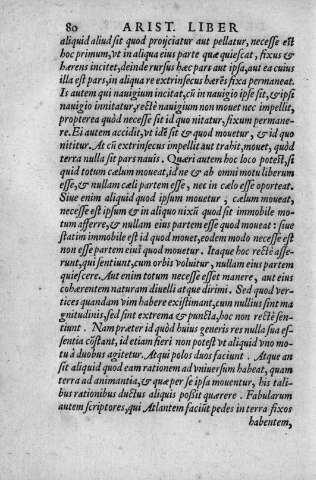 80 ARIST. LIBER
aliquid aliud sit quod proijciatur aut pellatur, necesse est
hoc primum, vt in aliqua eius parte quæ quiescat, fixus &
hærens incitet, deinde rursus hæc pars aut ipsa, aut ea cuius
illa est pars, in aliqua re extrinsecus hærẽs fixa permaneat.
Is autem qui nauigium incitat, cũ in nauigio ipse sit, & ipsi
nauigio innitatur, rectè nauigium non mouet nec impellit,
propterea quòd necesse sit id quo nitatur, fixum permane-
re. Ei autem accidit, vt idẽ sit & quod mouetur, & id quo
nititur. At cũ extrinsecus impellit aut trahit, mouet, quòd
terra nulla sit pars nauis. Quæri autem hoc loco potest, si
quid totum cælum moueat, id ne & ab omni motu liberum
esse, & nullam cæli partem esse, nec in cælo esse oporteat.
Siue enim aliquid quod ipsum mouetur, cælum moueat,
necesse est ipsum & in aliquo nixũ quod sit immobile mo-
tum afferre, & nullam eius partem esse quod moueat: siue
statim immobile est id quod mouet, eodem modo necesse est
non esse partem eius quod mouetur. Itaque hoc rectè asse-
runt, qui sentiunt, cum orbis voluitur, nullam eius partem
quiescere. Aut enim totum necesse esset manere, aut eius
cohærentem naturam diuelli atque dirimi. Sed quod ver-
tices quandam vim habere existimant, cum nullius sint ma
gnitudinis, sed sint extrema & puncta, hoc non rectè sen-
tiunt. Nam præter id quòd huius generis res nulla sua es-
sentia cõstant, id etiam fieri non potest vt aliquid vno mo-
tu à duobus agitetur. At qui polos duos faciunt. Atque an
sit aliquid quod eam rationem ad vniuersum habeat, quam
terra ad animantia, & quæ per se ipsa mouentur, his tali-
bus rationibus ductus aliquis possit quærere. Fabularum
autem scriptores, qui Atlantem faciũt pedes in terra fixos
habentem,